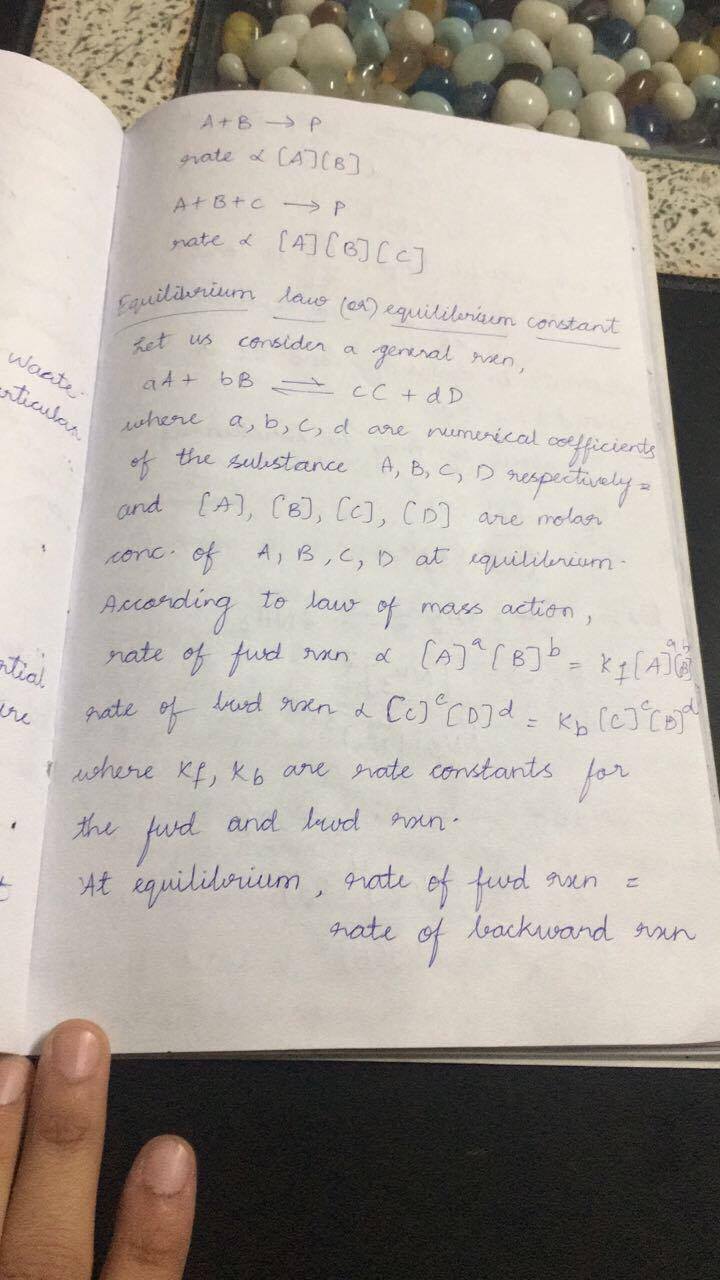 A + B → P
rate ∝ [A][B]
A + B + C → P
rate ∝ [A][B][C]
Equilibrium law (or) equilibrium constant
Let us consider a general rxn,
aA + bB ⇌ cC + dD
where a, b, c, d are numerical coefficients
of the substance A, B, C, D respectively =
and [A], [B], [C], [D] are molar
conc. of A, B, C, D at equilibrium.
According to law of mass action,
rate of fwd rxn ∝ [A]ᵃ[B]ᵇ = Kf[A]ᵃ[B]ᵇ
rate of bwd rxn ∝ [C]ᶜ[D]ᵈ = Kb[C]ᶜ[D]ᵈ
where Kf, Kb are rate constants for
the fwd and bwd rxn.
At equilibrium, rate of fwd rxn =
rate of backward rxn